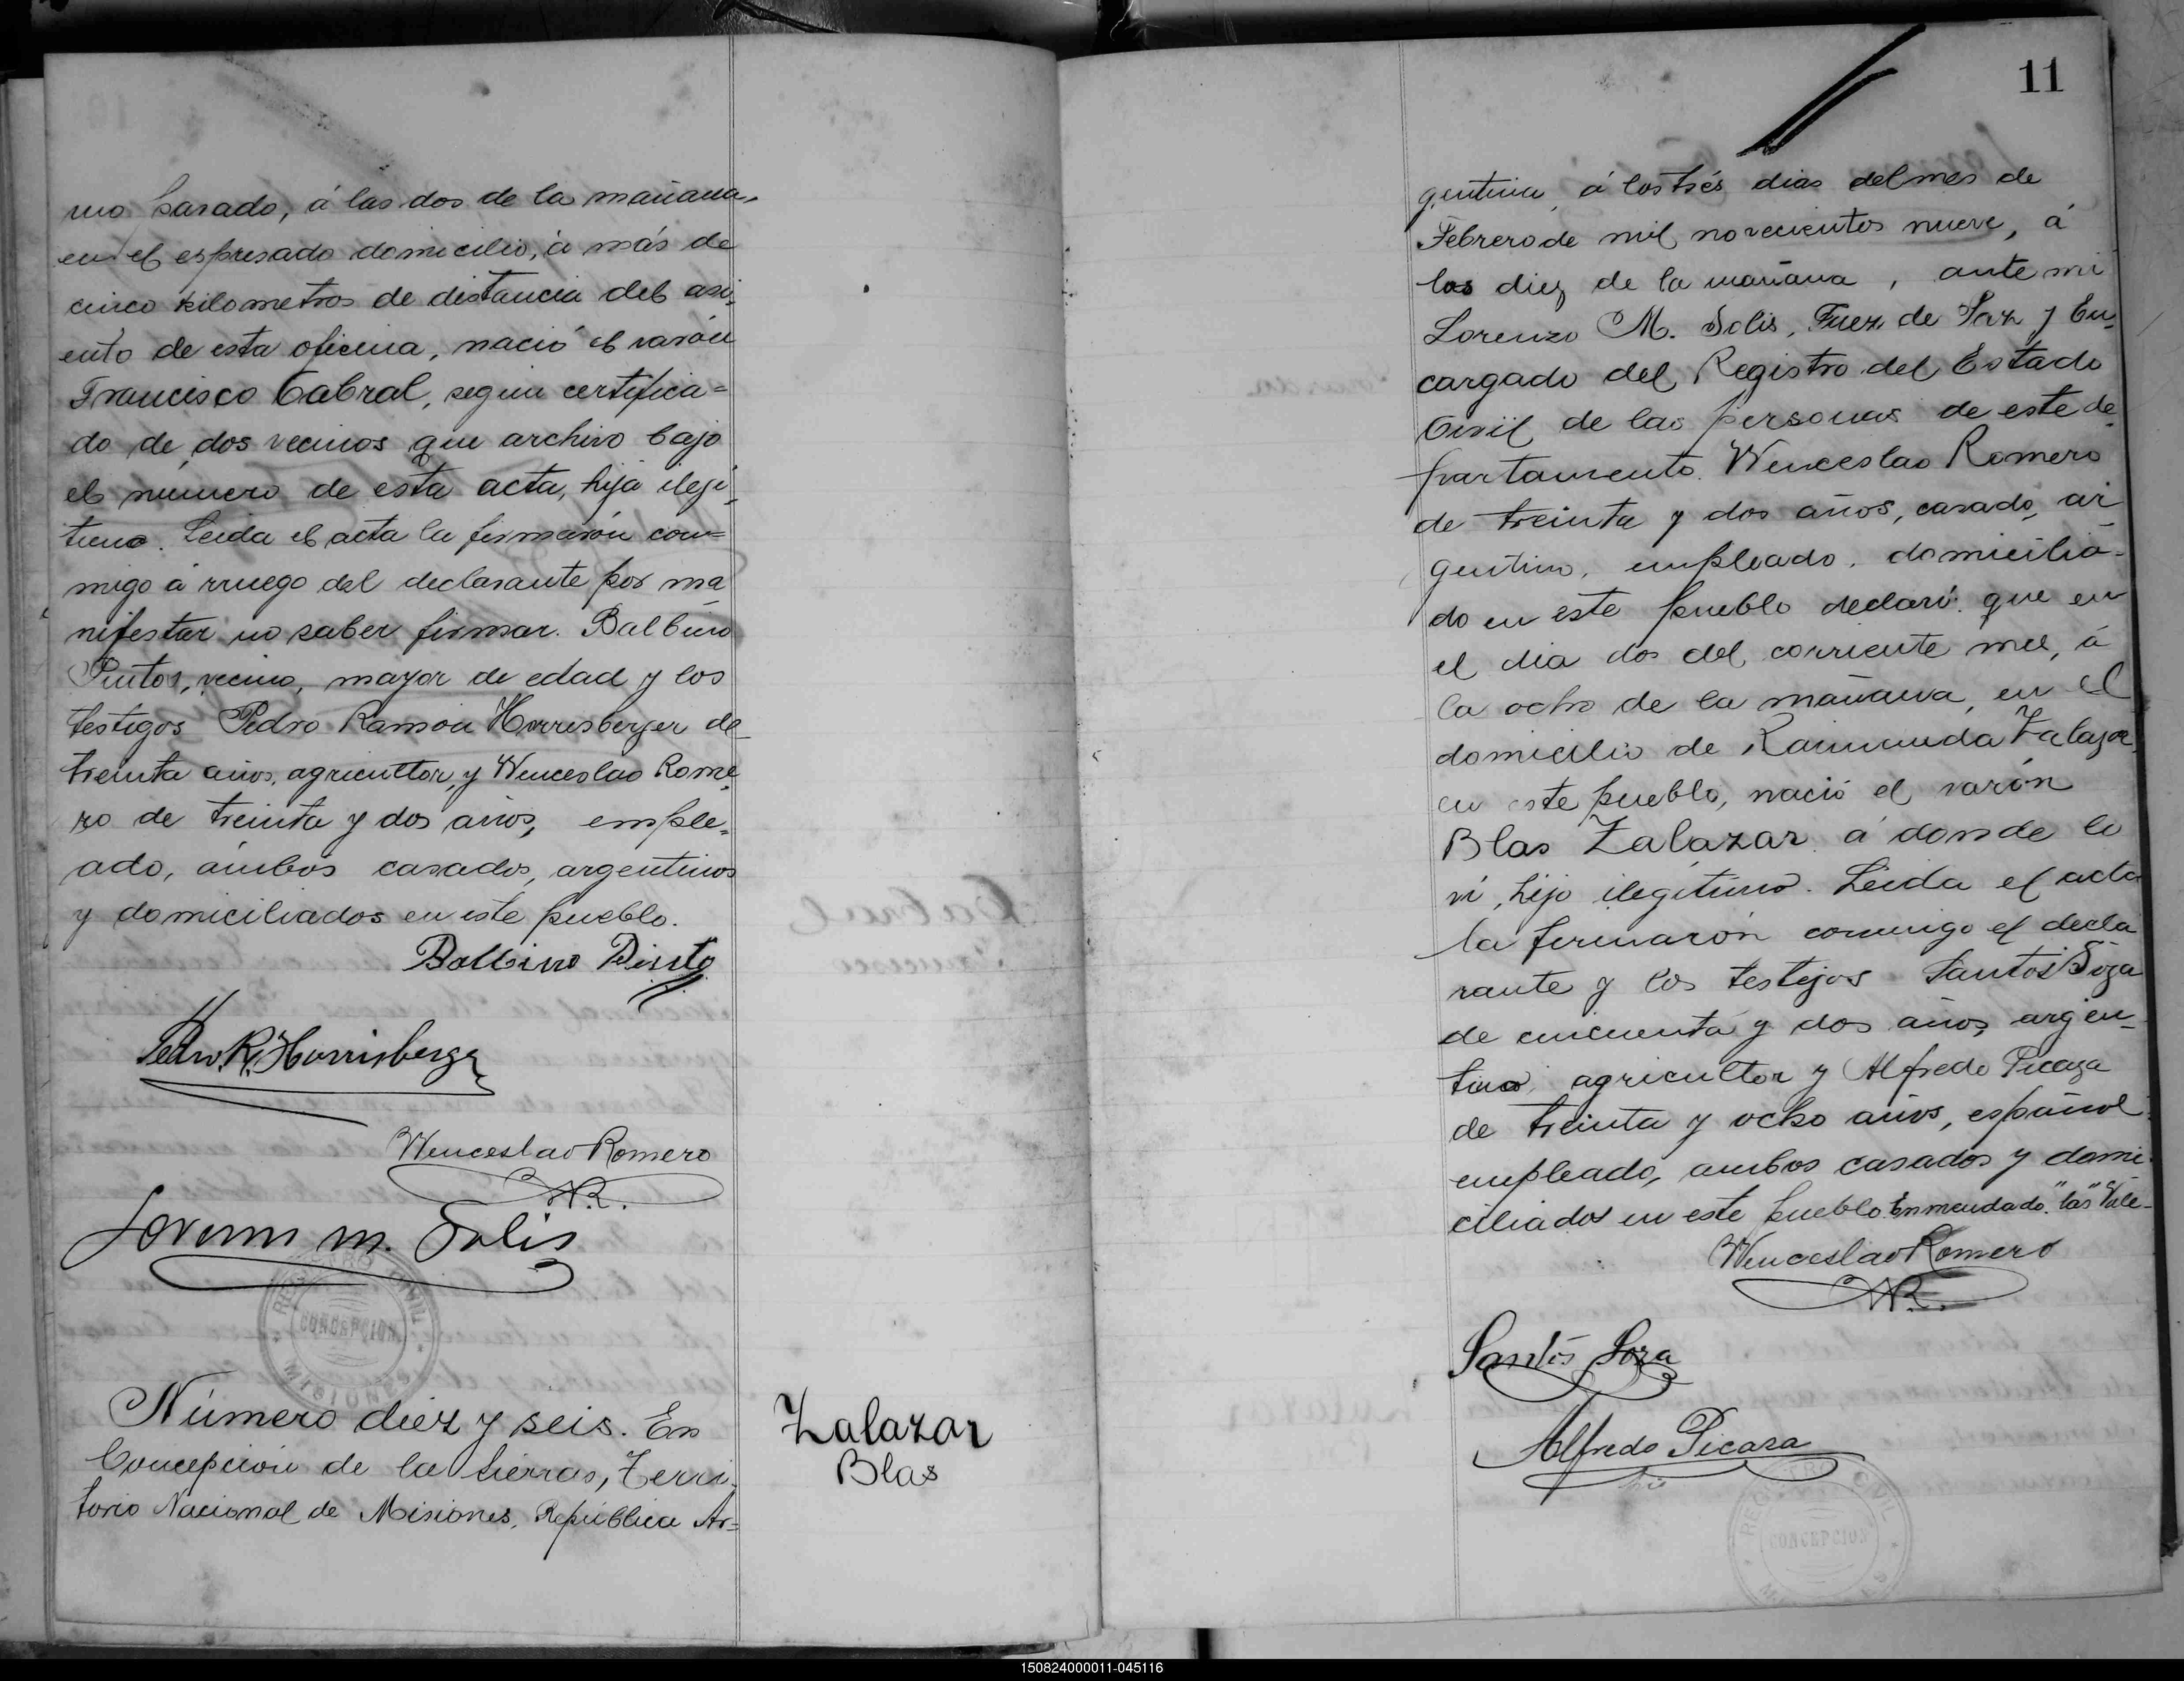 mo pasado, á las dos de la mañana,
en el espresado domicilio, á más de
cinco kilometros de distancia del asi-
ento de esta oficina, nació el varón
Francisco Cabral, segun certifica=
do de dos vecinos que archivo bajo
el numero de esta acta, hijo ileji-
timo. Leida el acta la firmarón con=
migo á rruego del declarante por ma
nifestar no saber firmar. Balbino
Pintos, vecino, mayor de edad y los
testigos Pedro Ramon Horrisberger de
treinta años, agricultor, y Wenceslao Rome-
ro de treinta y dos años, emple-
ado, ámbos casados, argentinos
y domiciliados en este pueblo.
Balbino Pinto
Pedro R. Horrisberger
Wenceslao Romero
W.R.
Lorenzo M. Solis
REGISTRO CIVIL
CONCEPCION
MISIONES
Número diez y seis. En
Concepción de la tierras, Terri-
torio Nacional de Misiones, República Ar=
Zalazar
Blas
11
gentina, á los trés dias del mes de
Febrero de mil novecientos nueve, á
las diez de la mañana, ante mi
Lorenzo M. Solis, Juez de Paz y En-
cargado del Registro del Estado
Civil de las personas de este de-
partamento. Wenceslao Romero
de treinta y dos años, casado, ar
gentino, empleado, domicilia-
do en este pueblo declaró: que en
el dia dos del corriente mes, á
la ocho de la mañana, en el
domicilio de Raimunda Zalazar,
en este pueblo, nació el varón
Blas Zalazar á donde lo
ví, hijo ilegítimo. Leida el acta
la firmarón conmigo el decla
rante y los testigos Santos Soza
de cincuenta y dos años, argen-
tino, agricultor y Alfredo Picaza
de treinta y ocho años, español
empleado, ambos casados y domi-
ciliados en este pueblo. Enmendado "las" Vale-
Wenceslao Romero
W.R.
Santos Soza
Alfredo Picaza
REGISTRO CIVIL
CONCEPCION
150824000011-045116